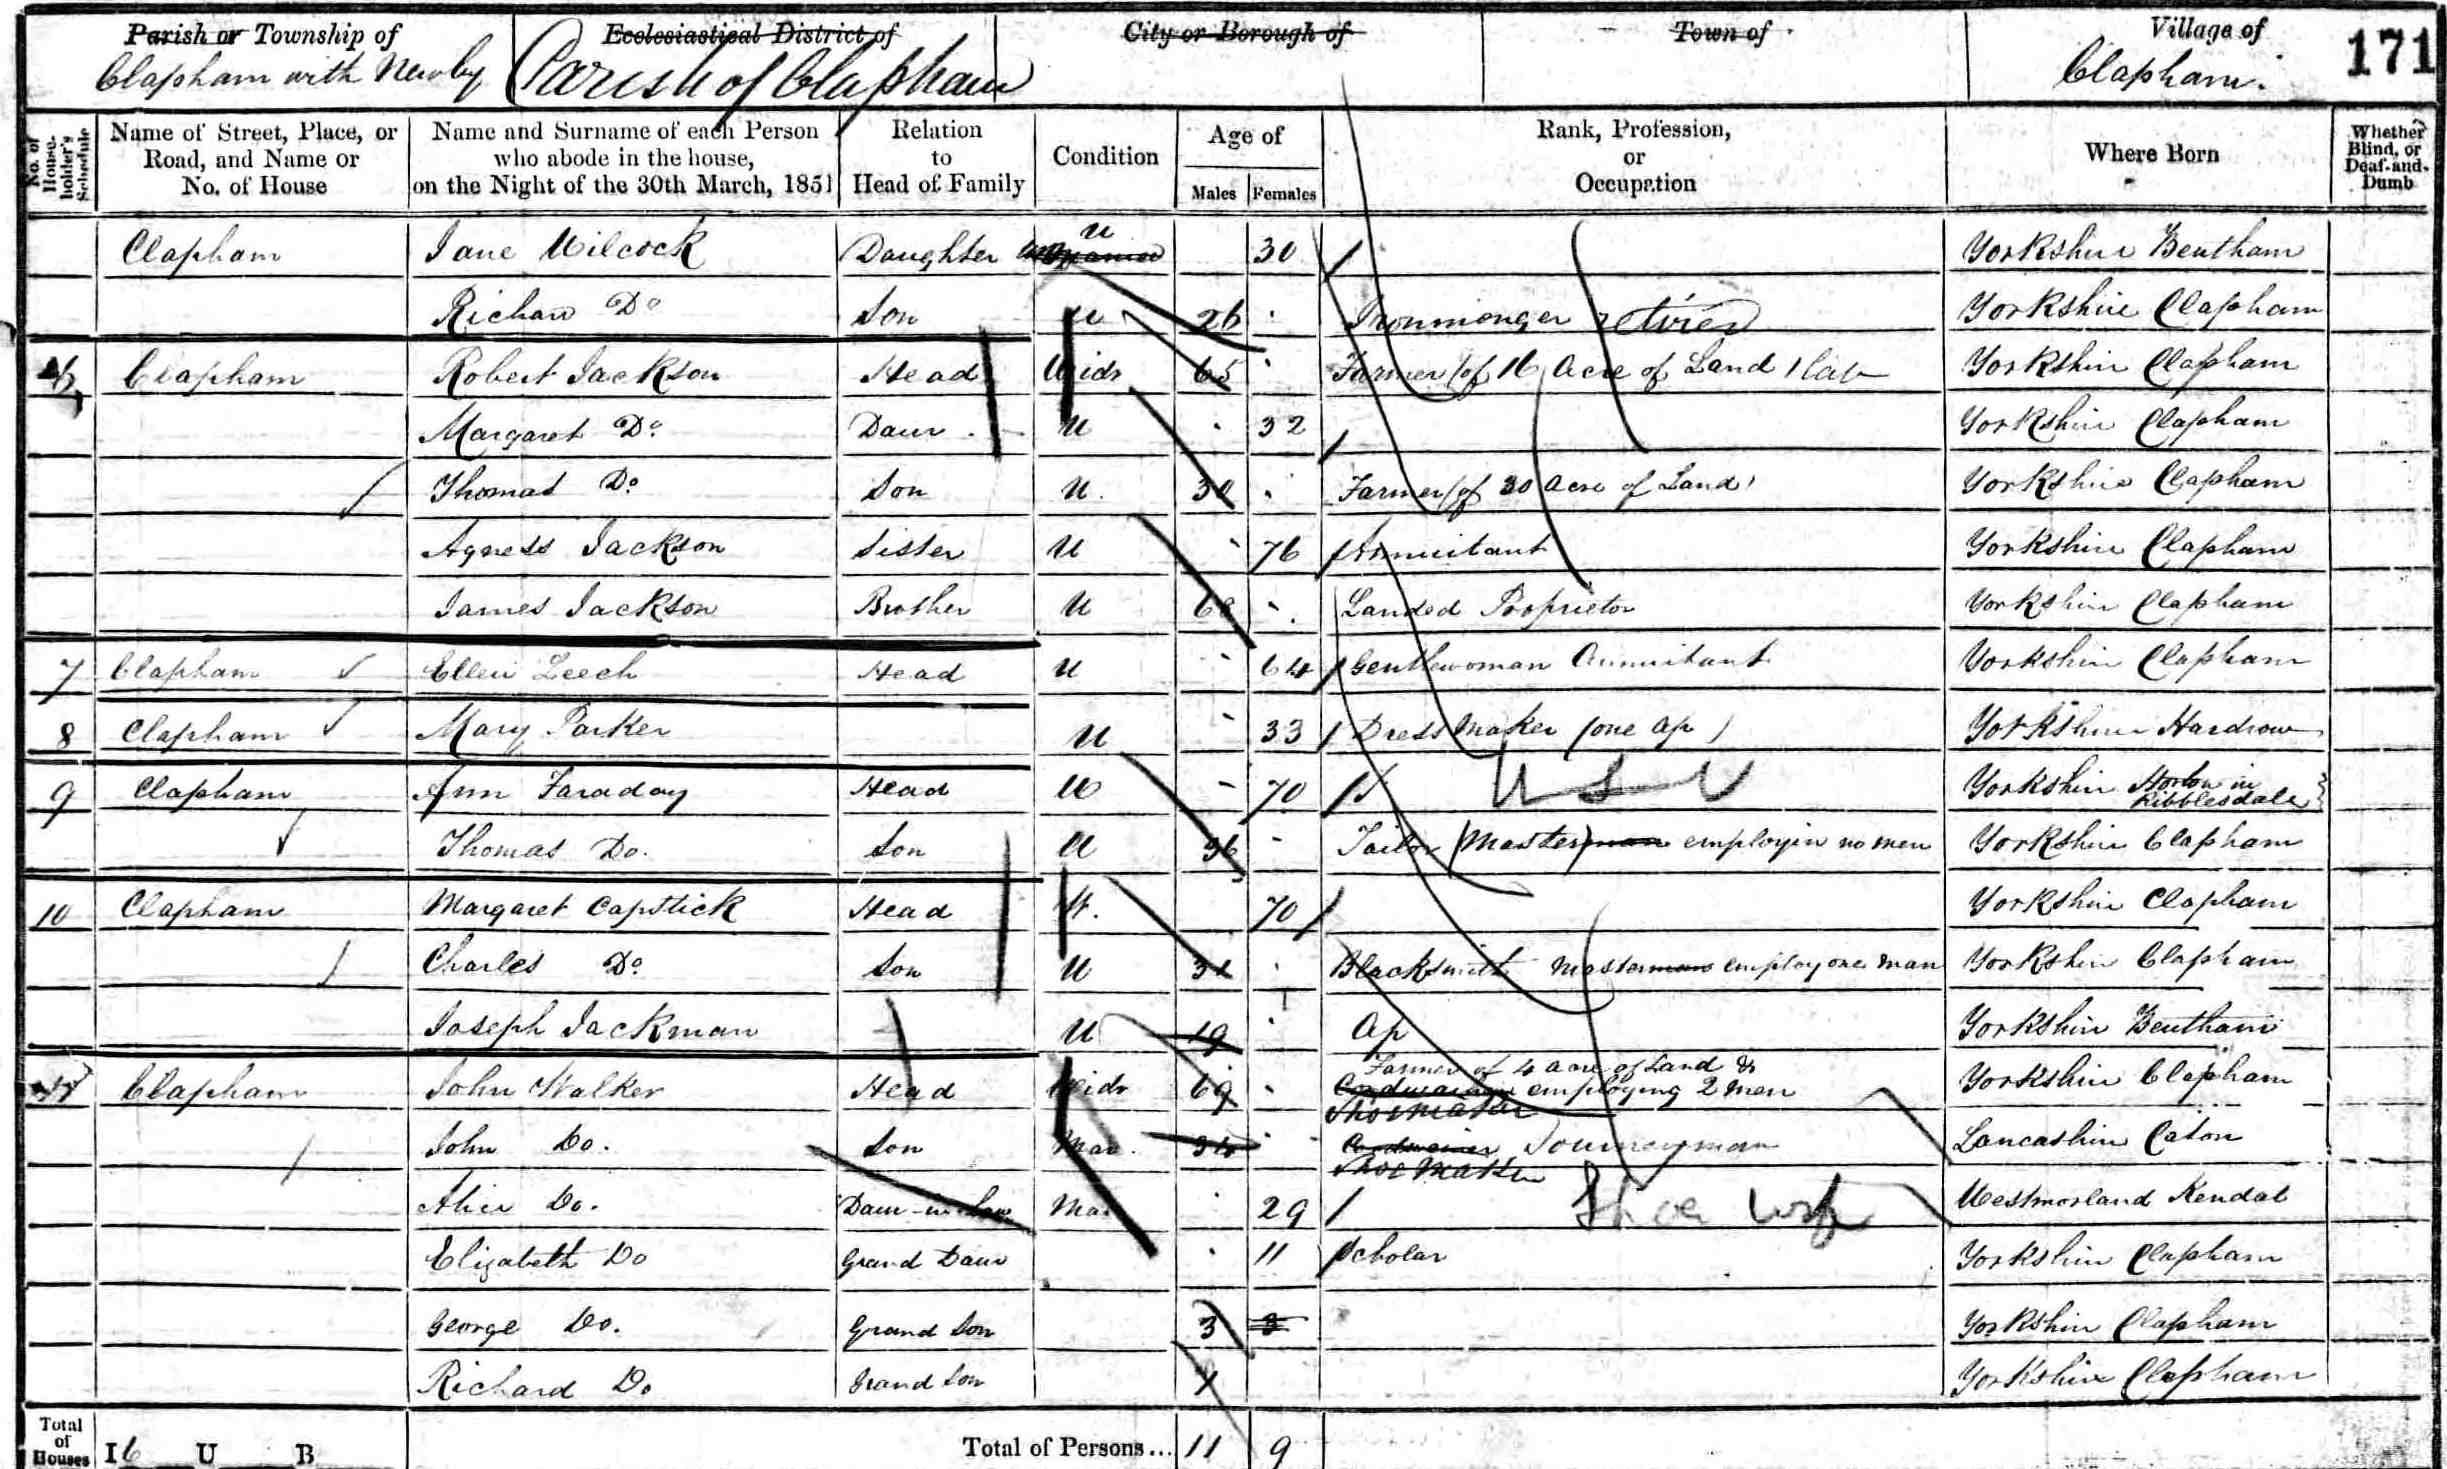 Parish or Township of Ecclesiastical District of City or Borough of Town of Village of 171
Clapham with Newby Parish of Clapham Clapham.
No. of House-holder's Schedule
Name of Street, Place, or Road, and Name or No. of House
Name and Surname of each Person who abode in the house, on the Night of the 30th March, 1851
Relation to Head of Family
Condition
Age of Males Females
Rank, Profession, or Occupation
Where Born
Whether Blind, or Deaf-and-Dumb
Clapham Jane Wilcock Daughter U 30 Yorkshire Bentham
Richard Do Son U 26 Ironmonger retired Yorkshire Clapham
Clapham Robert Jackson Head Widr 65 Farmer (of 16 Acre of Land 1 Lab Yorkshire Clapham
Margaret Do. Daur U 32 Yorkshire Clapham
Thomas Do. Son U. 30 Farmer (of 30 Acre of Land) Yorkshire Clapham
Agness Jackson Sister U 76 Annuitant Yorkshire Clapham
James Jackson Brother U 68 Landed Proprietor Yorkshire Clapham
7 Clapham Ellen Leech Head U 64 Gentlewoman Annuitant Yorkshire Clapham
8 Clapham Mary Parker U 33 Dress Maker (one ap) Yorkshire Hardrow
9 Clapham Ann Faraday Head W 70 Yorkshire Horton in Ribblesdale
Thomas Do. Son U 36 Tailor (Master) man employin no men Yorkshire Clapham
10 Clapham Margaret Capstick Head W. 70 Yorkshire Clapham
Charles Do. Son U 31 Blacksmith Master man employ one man Yorkshire Clapham
Joseph Jackman U 19 Ap Yorkshire Bentham
Farmer of 4 acre of Land &
Clapham John Walker Head Widr 69 Cordwainer employing 2 Men Yorkshire Clapham
Shoemaker
John Do. Son Mar. 34 Cordwainer Journeyman Lancashire Caton
Shoe Maker
Alice Do. Daur-in-Law Mar 29 Westmorland Kendal
Shoe
Elizabeth Do Grand Daur 11 Scholar Yorkshire Clapham
George Do. Grand Son 3 3 Yorkshire Clapham
Richard Do Grand Son Yorkshire Clapham
Total of Houses I 6 U B Total of Persons... 11 9